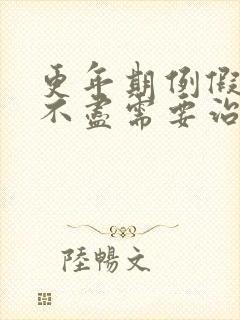 更年期例假
不尽需要治
陸暢文